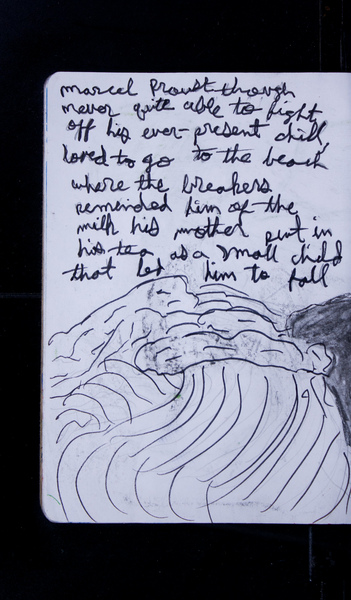 marcel Proust though
never quite able to fight
off his ever-present chill,
loved to go to the beach
where the breakers
reminded him of the
milk his mother put in
his tea as a small child
that led him to fall